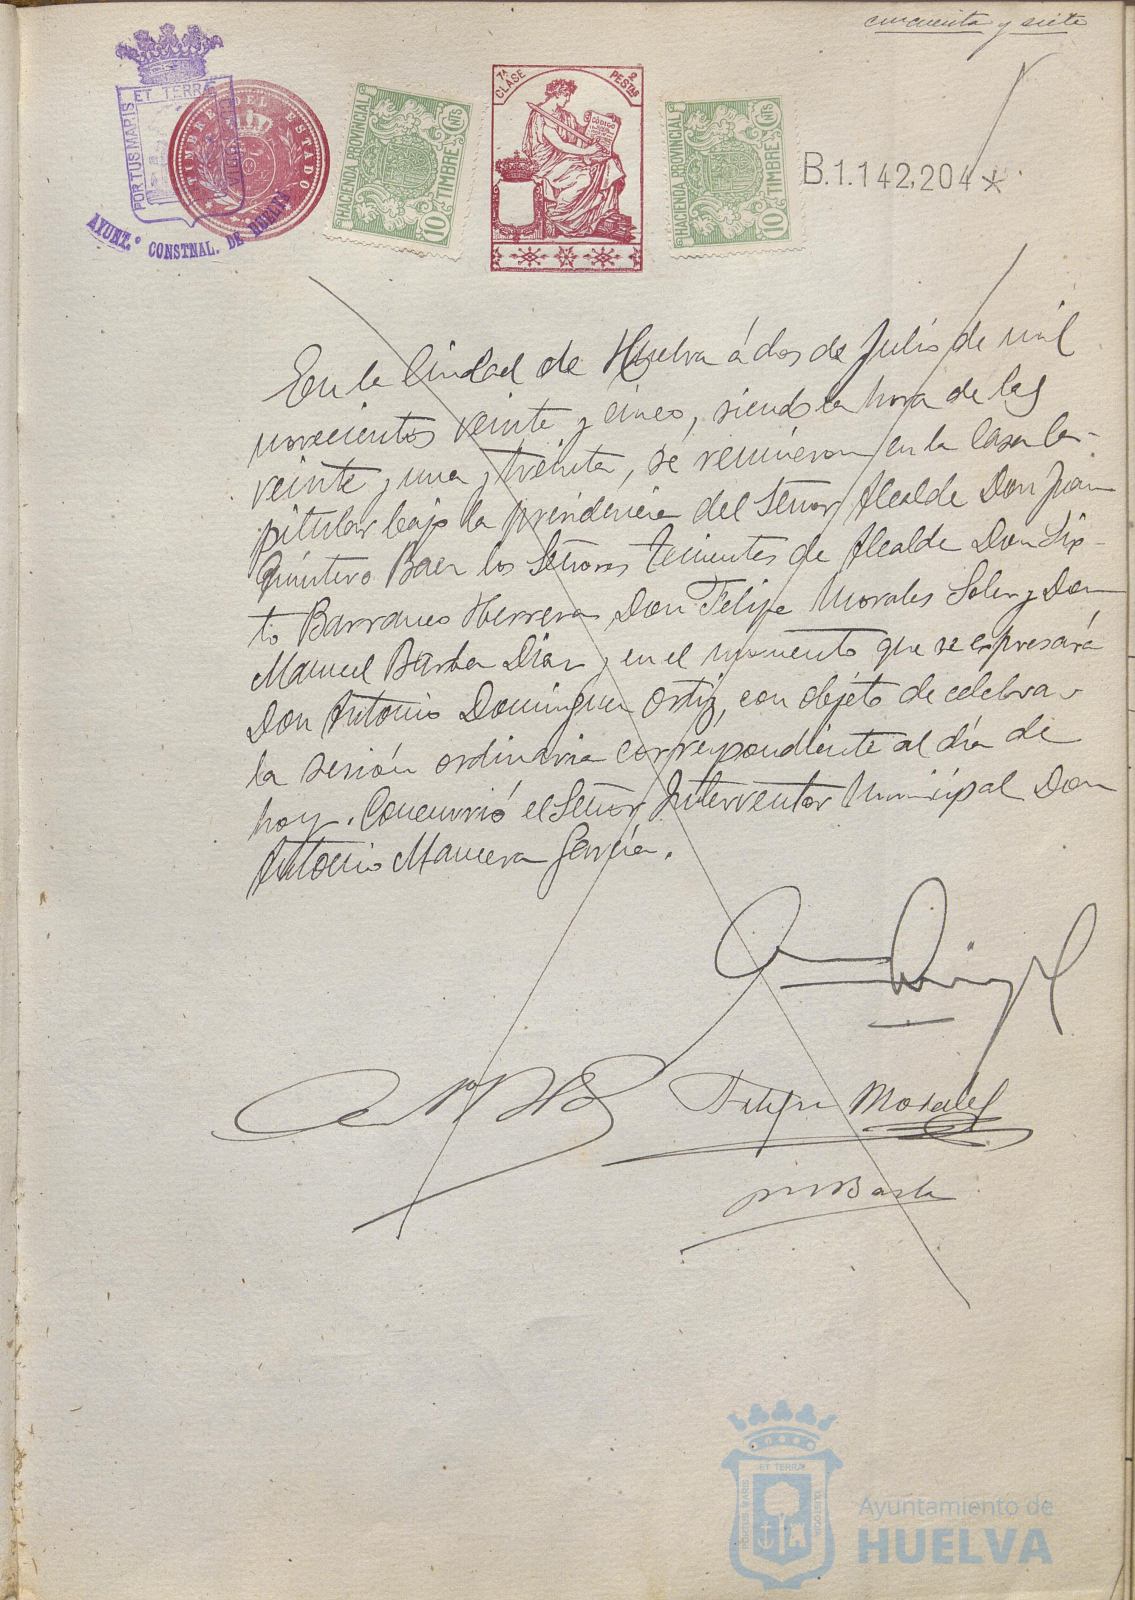 cincuenta y siete
PORTUS MARIS ET TERRÆ
AYUNT.º CONSTNAL. DE HUELVA
TIMBRE DEL ESTADO
HACIENDA PROVINCIAL
10 CNTS
TIMBRE
7ª CLASE
2 PESTAS
CÓDIGO
HACIENDA PROVINCIAL
10 CNTS
TIMBRE
B.1.142,204*
En la Ciudad de Huelva á dos de Julio de mil
novecientos veinte y cinco, siendo la hora de las
veinte y una y treinta, se reunieron en la Casa Ca-
pitular bajo la presidencia del Señor Alcalde Don Juan
Quintero Baez los Señores Tenientes de Alcalde Don Six-
to Barranco Herrera, Don Felipe Morales Soler y Don
Manuel Barba Diaz y en el momento que se expresará
Don Antonio Dominguez Ortiz, con objéto de celebrar
la sesión ordinaria correspondiente al día de
hoy. Concurrió el Señor Interventor Municipal Don
Antonio Mancera García.
Felipe Morales
M Barba
PORTUS MARIS ET TERRÆ CUSTODIA
Ayuntamiento de
HUELVA